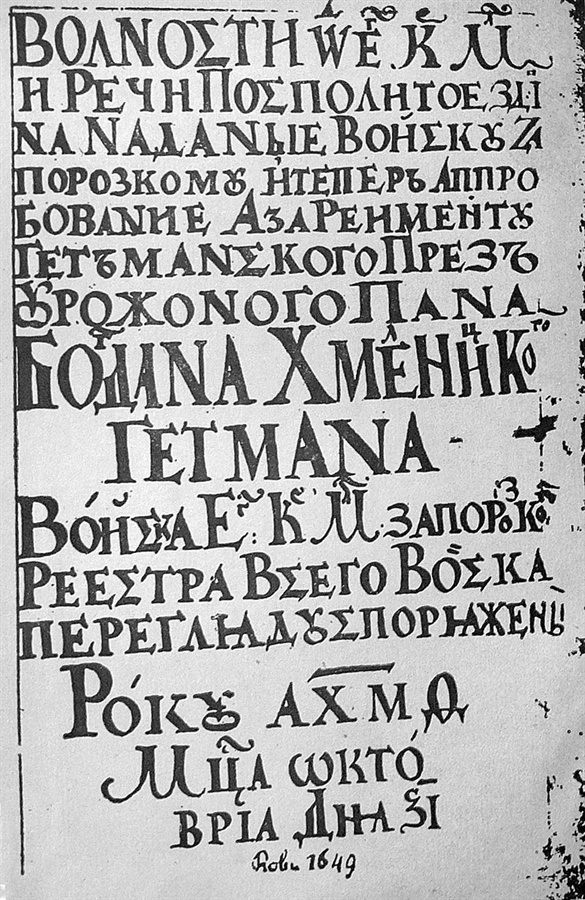 ВОЛНОСТИ Ѿ Е͠Г К М Д
И РЕЧИ ПОСПОЛИТОЕ ЗДІ
NА NАДАNЫЕ ВОЙСКУ ЗА
ПОРОЗКОМꙊ И ТЕПЕРЪ АППРО
БОВАNИЕ АЗА РЕИМЕНТꙊ
ГЕТЪМАNСКОГО ПРЕЗЪ
ꙊРОЖОNОГО ПАNА
БОГДАNА ХМЕЛNИЦКОГО
ГЕТМАNА
ВО́ЙСКА Е: К М ЗАПОРОЗКО
РЕЕСТРА ВСЕГО ВОСКА
ПЕРЕГЛꙖДꙊ СПОРꙖЖЕNЫ
РО́КꙊ АХМѲ
МЦА ѠКТО́
ВРІА ДNꙖ ЅІ
Roku 1649